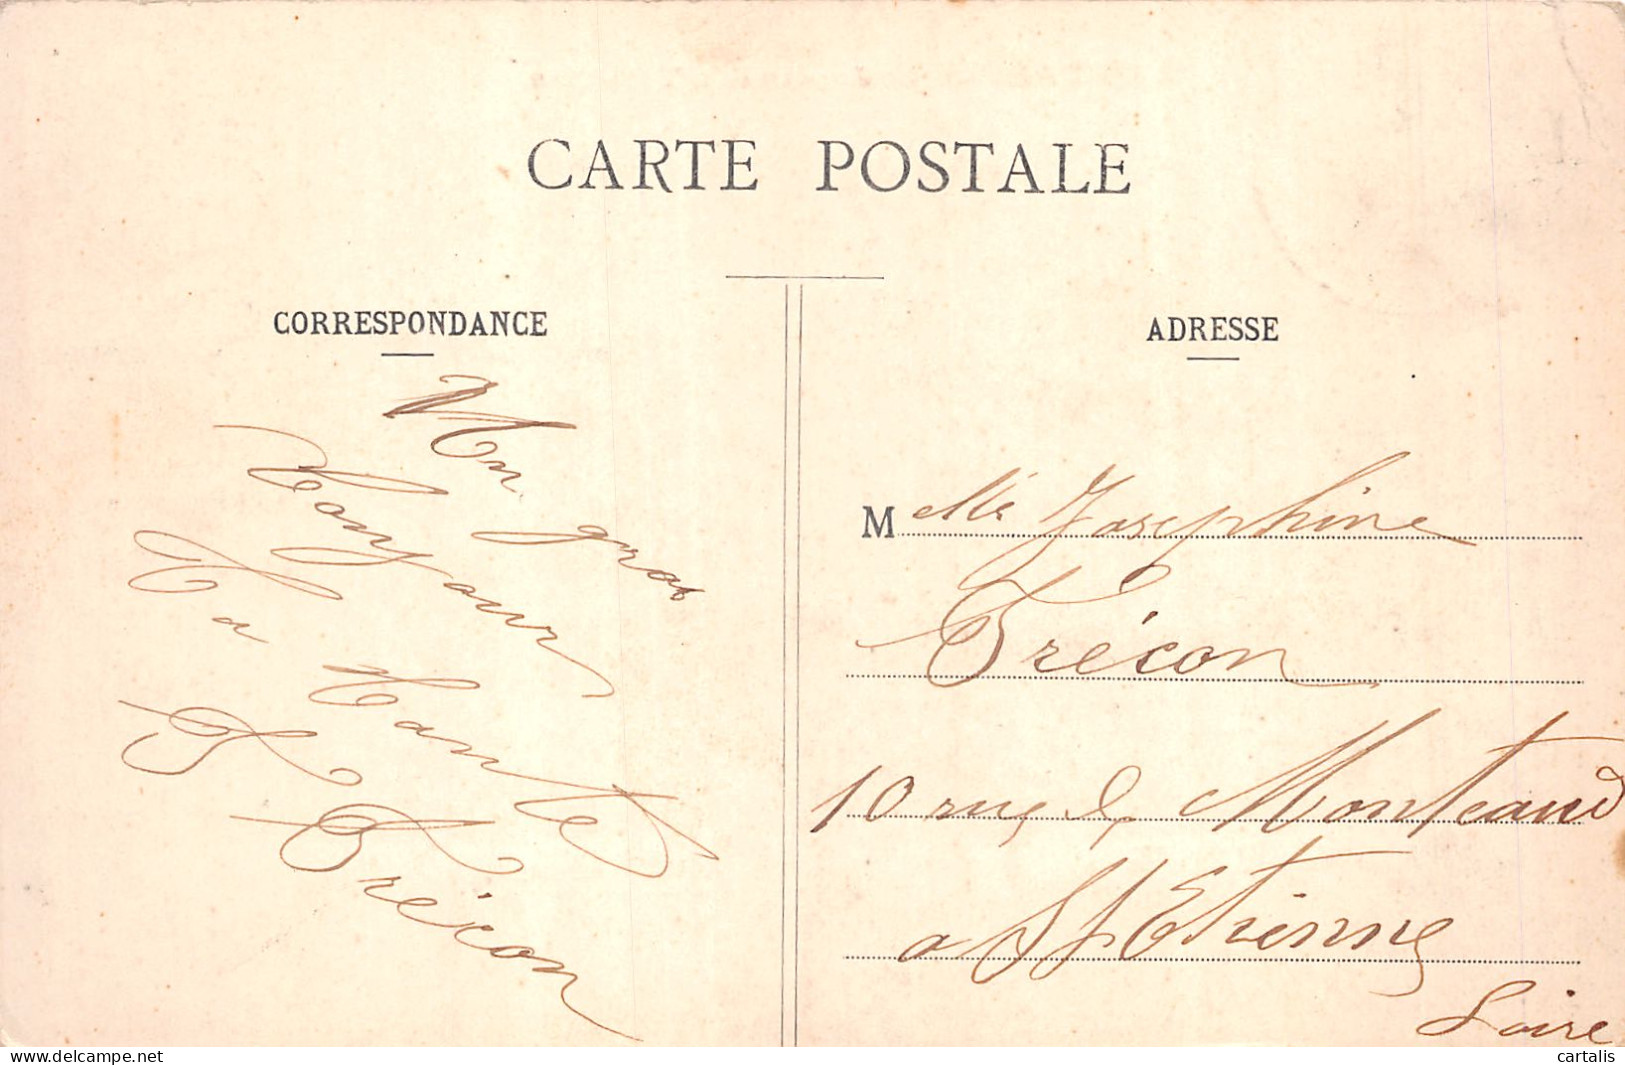 CARTE POSTALE
CORRESPONDANCE
Un gros
Bonjour
Ta tante
F Trécon
ADRESSE
Melle Josephine
Trécon
10 rue de Monteaud
a St Etienne
Loire
www.delcampe.net
cartalis